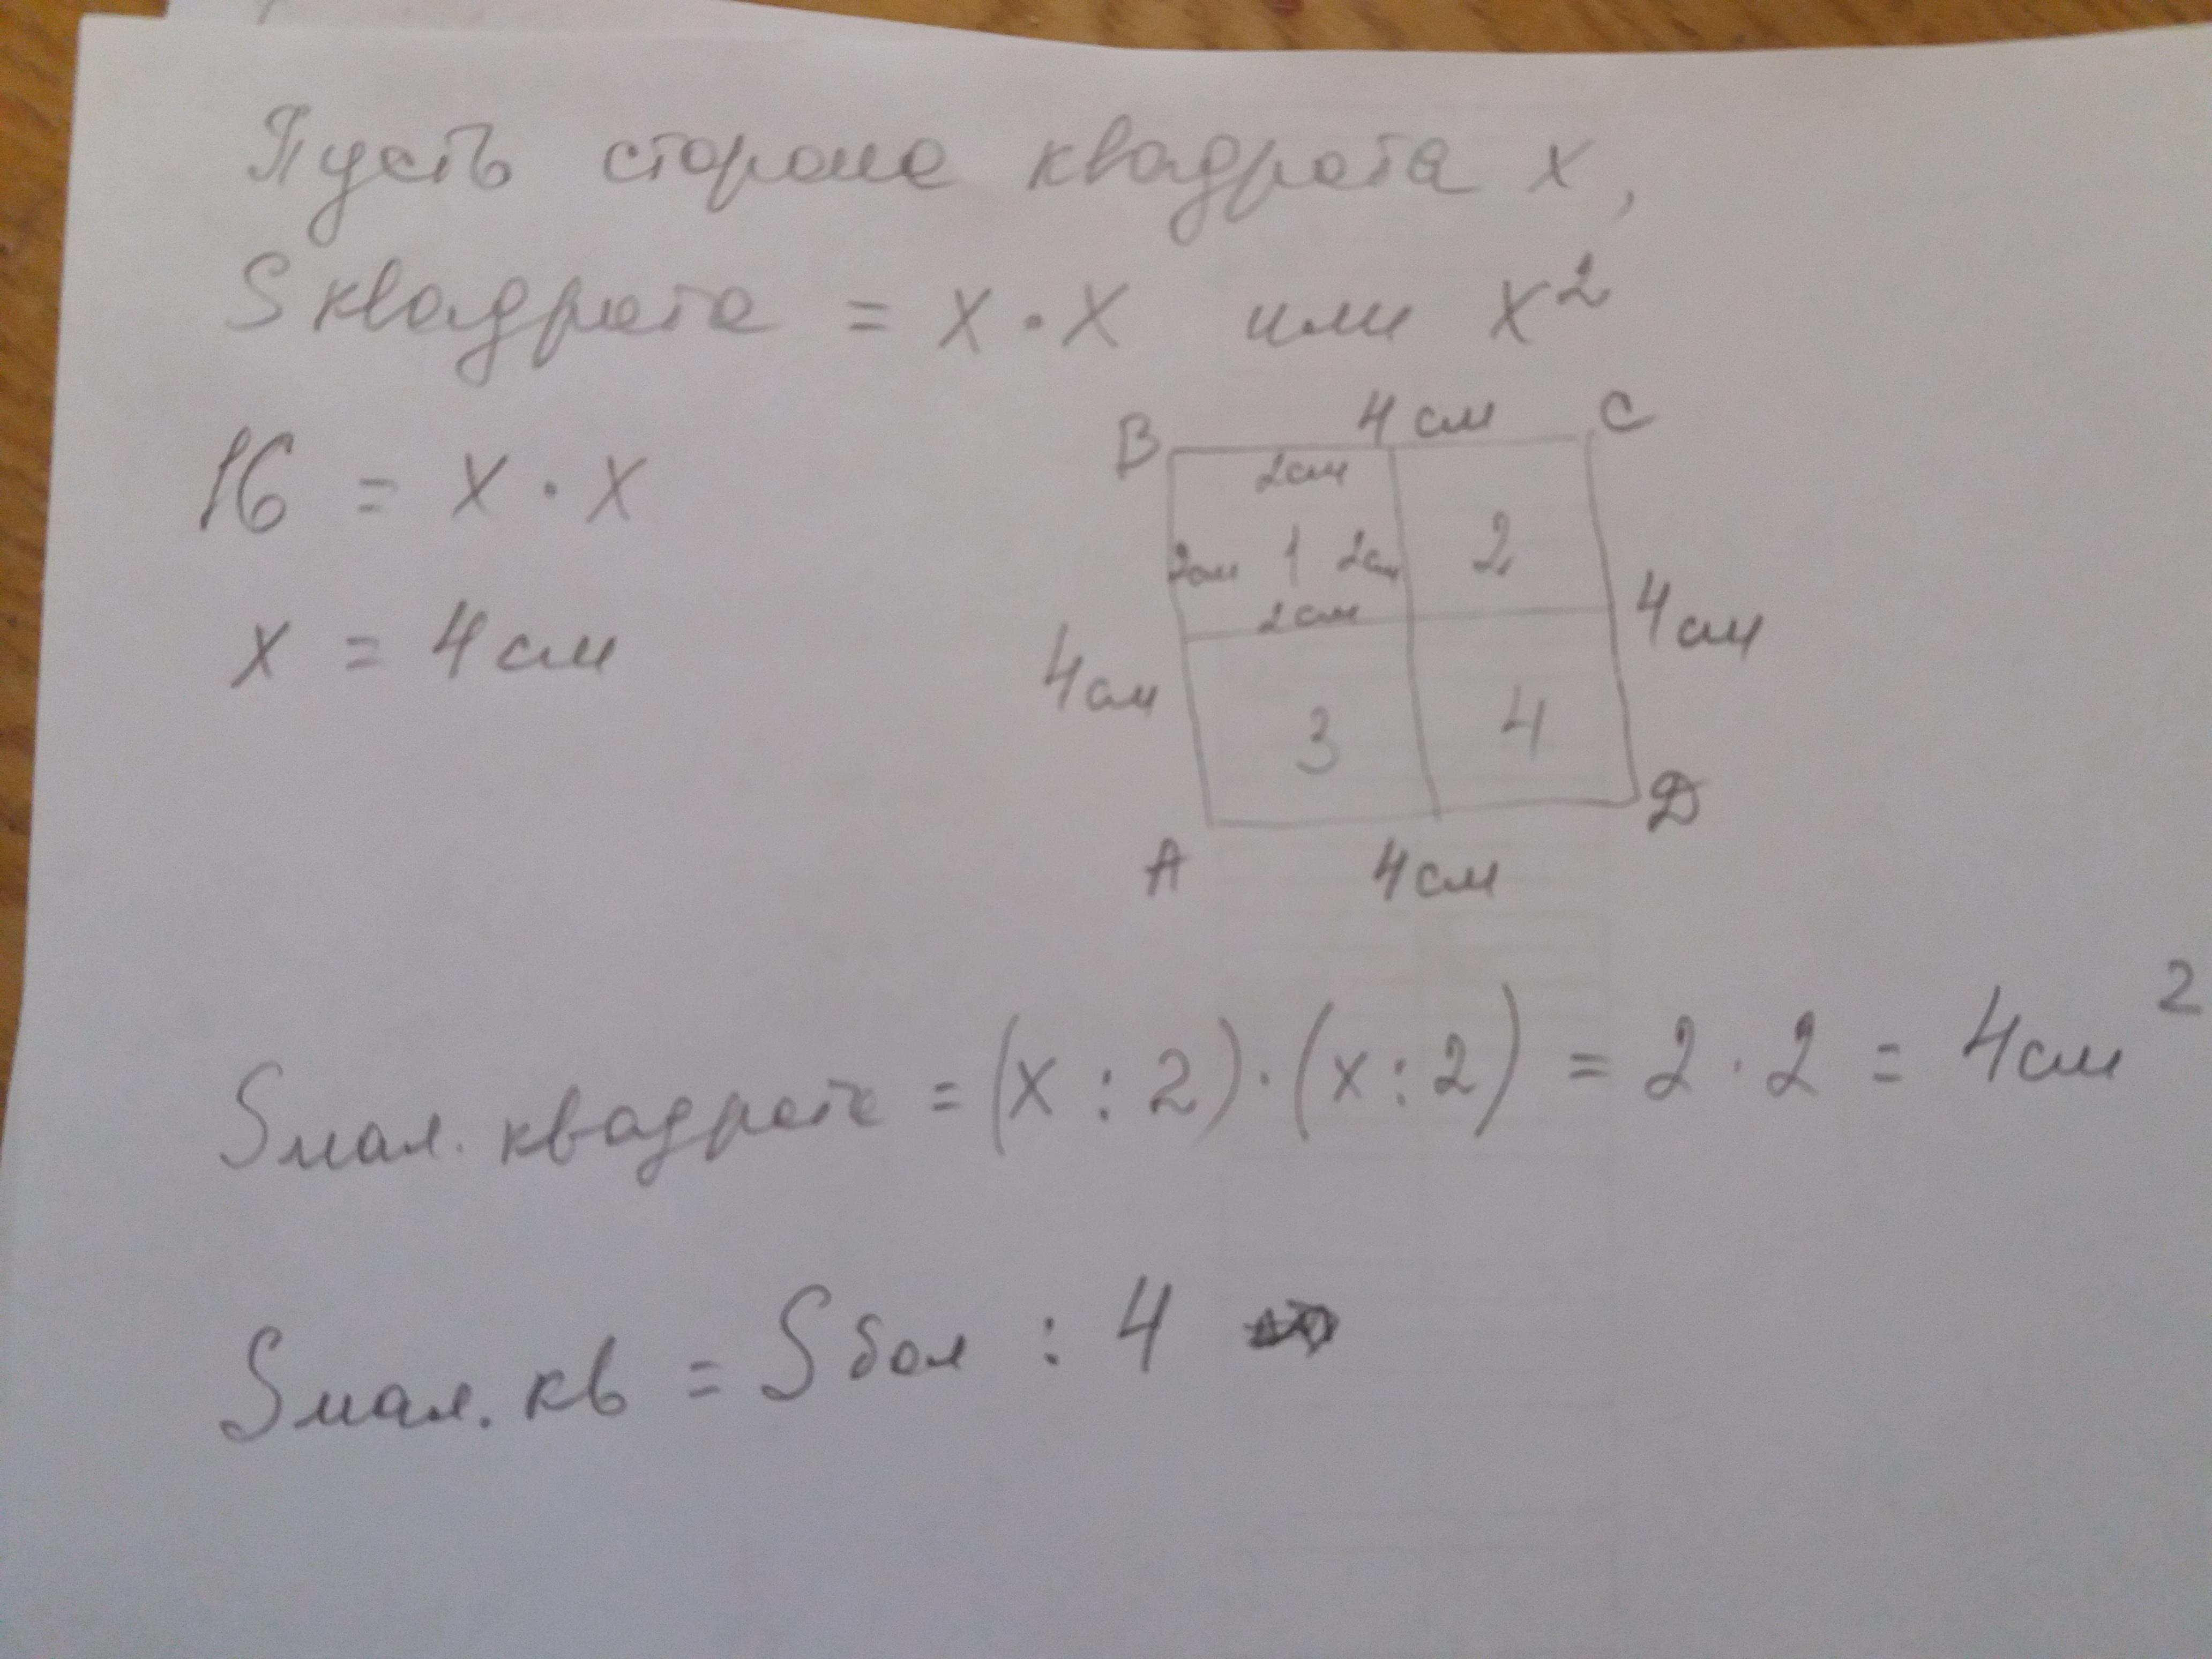 Пусть сторона квадрата x,
S квадрата = x · x или x²
16 = x · x
x = 4 см
B 4 см C
2см
2см 1 2см 2
2см
4см 4см
3 4
A 4см D
S мал. квадрата = (x : 2) · (x : 2) = 2 · 2 = 4см²
S мал. кв = S бол : 4